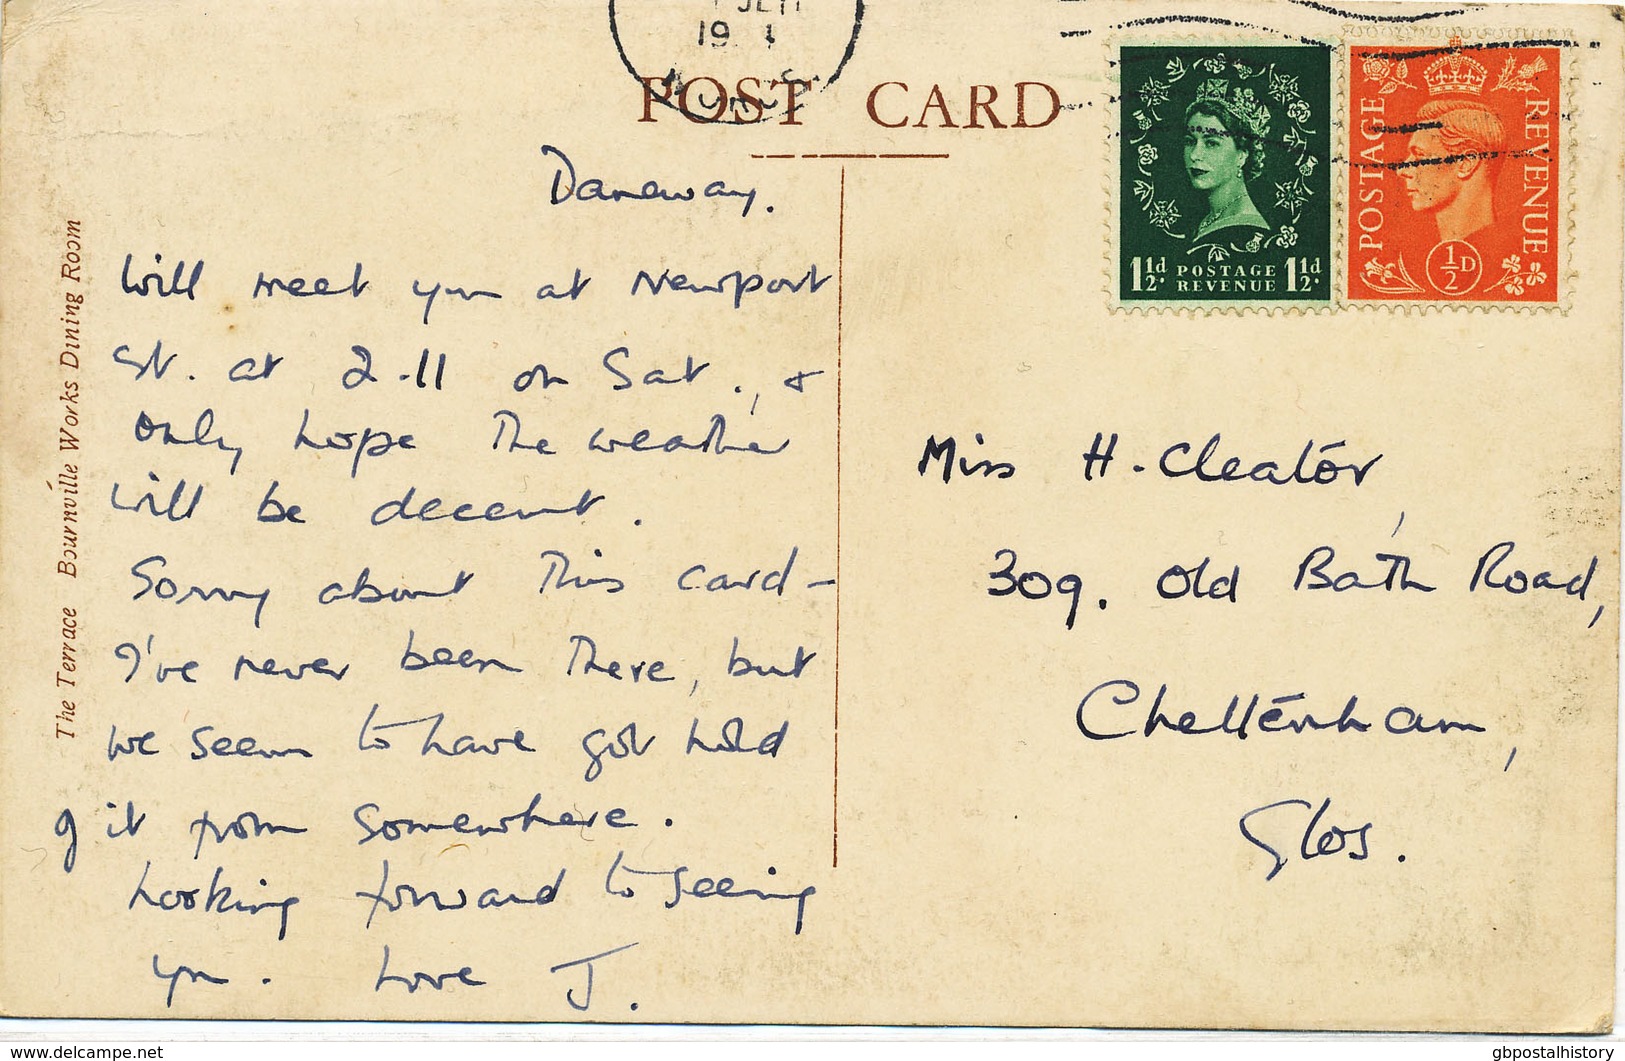 19
POST CARD
Daneway.
Will meet you at Newport
St. at 2-11 on Sat., &
only hope the weather
will be decent.
Sorry about this card -
I've never been there, but
we seem to have got hold
of it from somewhere.
Looking forward to seeing
you. Love J.
The Terrace Bournville Works Dining Room
1½d. POSTAGE REVENUE 1½d.
POSTAGE REVENUE
½D
Miss H. Cleator,
309, Old Bath Road,
Cheltenham,
Glos.
delcampe.net
gbpostalhistory